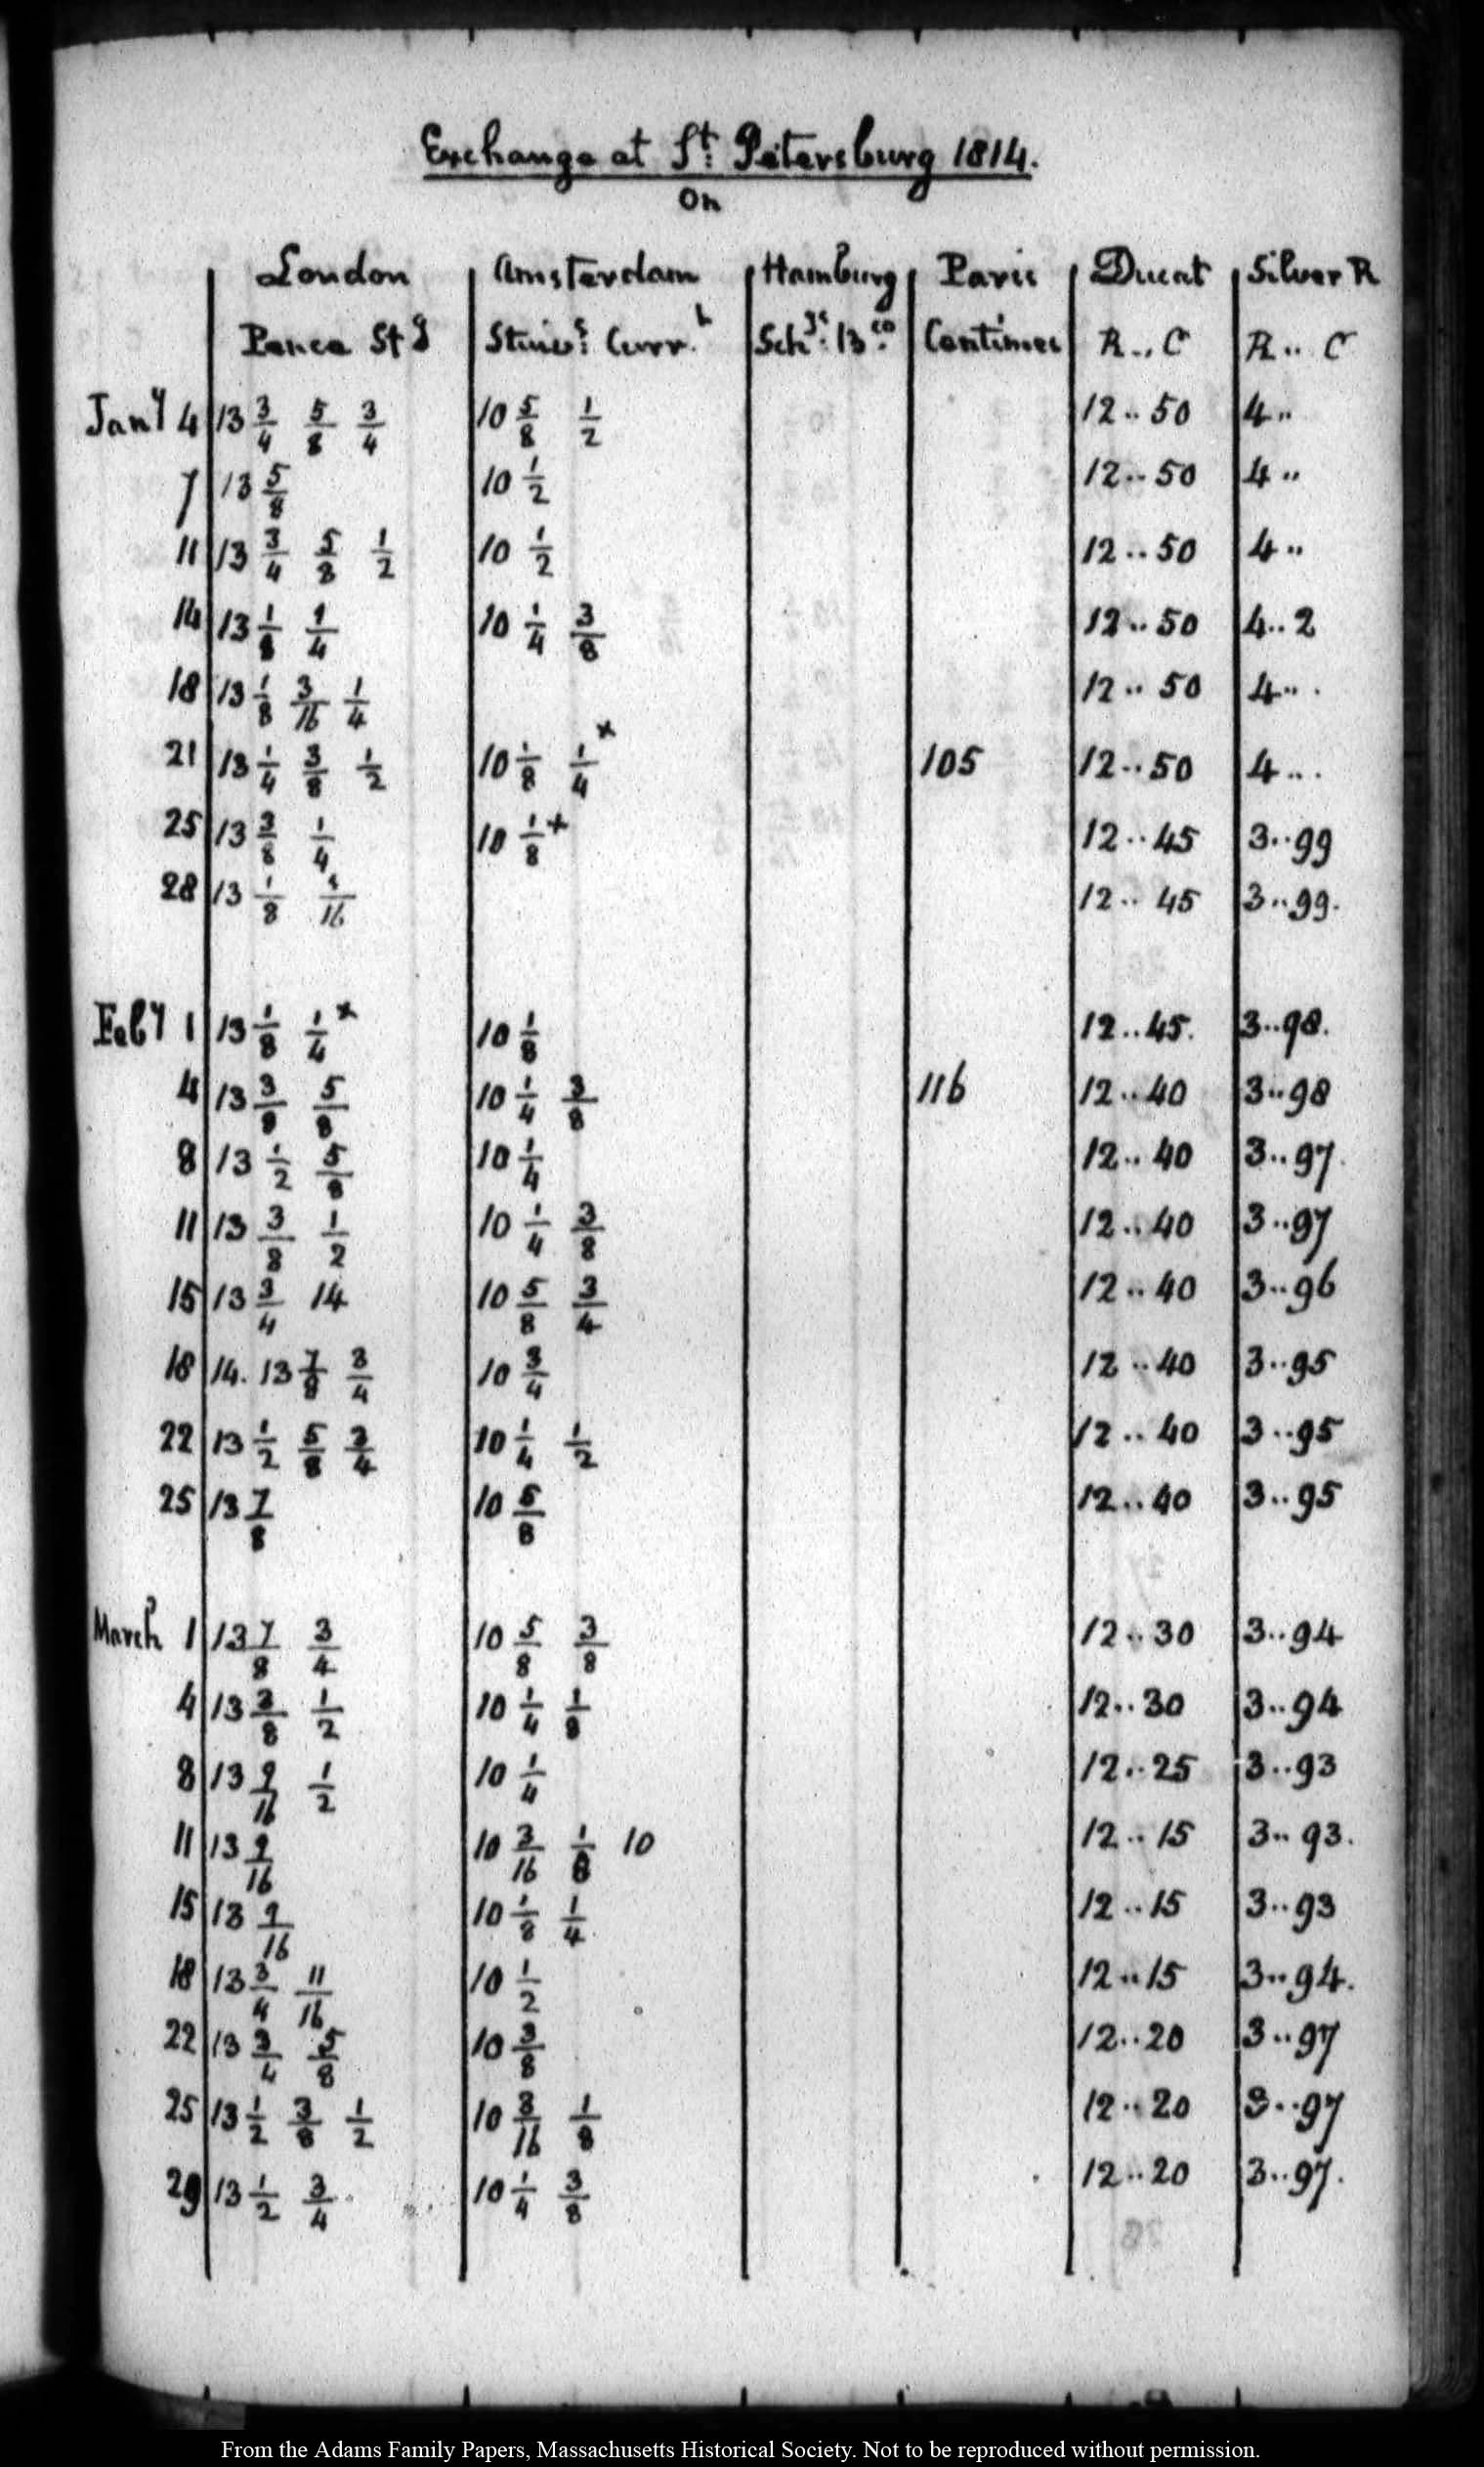 Exchange at St: Petersburg 1814.
on
London Amsterdam Hamburg Paris Ducat Silver R
Pence Stg Stuivs: Curr.t Schgs: Bco: Centimes R..C R..C
Jany 4 13 3/4 5/8 3/4 10 5/8 1/2 12..50 4..
7 13 5/8 10 1/2 12..50 4..
11 13 3/4 5/8 1/2 10 1/2 12..50 4..
14 13 1/8 1/4 10 1/4 3/8 12..50 4..2
18 13 1/8 3/16 1/4 12..50 4...
21 13 1/4 3/8 1/2 10 1/8 1/4 x 105 12..50 4...
25 13 3/8 1/4 10 1/8 + 12..45 3..99
28 13 1/8 1/16 12..45 3..99.
Feby 1 13 1/8 1/4 x 10 1/8 12..45. 3..98.
4 13 3/8 5/8 10 1/4 3/8 116 12..40 3..98
8 13 1/2 5/8 10 1/4 12..40 3..97.
11 13 3/8 1/2 10 1/4 3/8 12..40 3..97
15 13 3/4 14 10 5/8 3/4 12..40 3..96
18 14. 13 7/8 3/4 10 3/4 12..40 3..95
22 13 1/2 5/8 3/4 10 1/4 1/2 12..40 3..95
25 13 7/8 10 5/8 12..40 3..95
March 1 13 7/8 3/4 10 5/8 3/8 12..30 3..94
4 13 3/8 1/2 10 1/4 1/8 12..30 3..94
8 13 9/16 1/2 10 1/4 12..25 3..93
11 13 9/16 10 3/16 1/8 10 12..15 3..93.
15 13 9/16 10 1/8 1/4 12..15 3..93
18 13 3/4 11/16 10 1/2 12..15 3..94.
22 13 3/4 5/8 10 3/8 12..20 3..97
25 13 1/2 3/8 1/2 10 3/16 1/8 12..20 3..97
29 13 1/2 3/4 10 1/4 3/8 12..20 3..97.
From the Adams Family Papers, Massachusetts Historical Society. Not to be reproduced without permission.